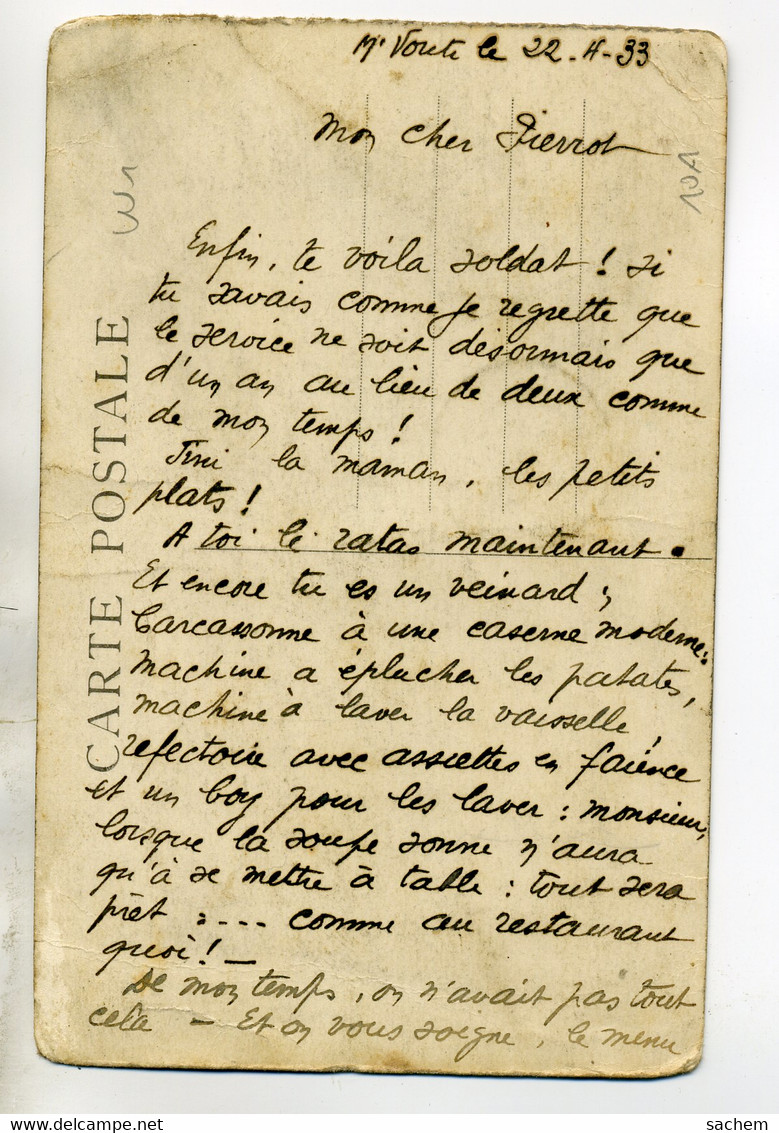 le 22-4-33
Mon cher Pierrot
Enfin, te voila soldat ! si
tu savais comme je regrette que
le service ne soit désormais que
d'un an au lieu de deux comme
de mon temps !
Fini la maman, les petits
plats !
A toi le ratas maintenant.
Et encore tu es un veinard ;
Carcassonne à une caserne moderne :
machine a éplucher les patates,
machine à laver la vaisselle,
refectoire avec assiettes en faïence
et un boy pour les laver : monsieur,
lorsque la soupe sonne n'aura
qu'à se mettre à table : tout sera
prêt :--- comme au restaurant
quoi ! —
De mon temps, on n'avait pas tout
cela — Et on vous soigne, le menu
CARTE POSTALE
10A
delcampe.net
sachem